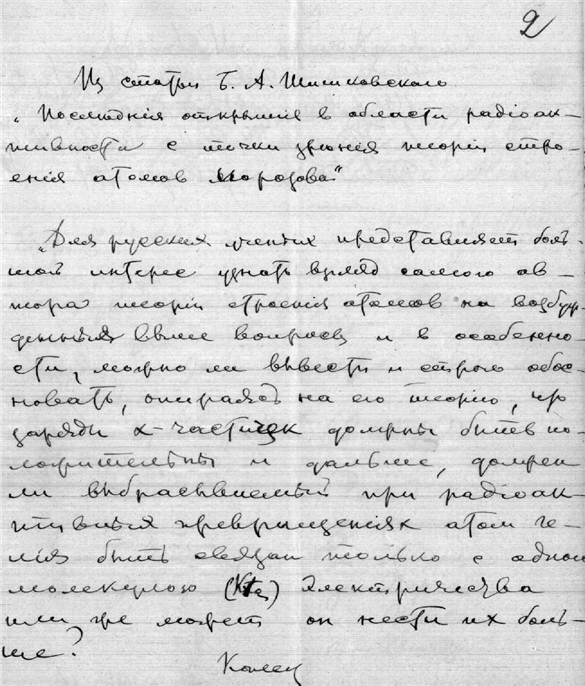 2
Из статьи Б. А. Шишковского
„Последнія открытія в области радіоак-
тивности с точки зрѣнія теоріи строе-
енія атомов Морозова"
„Для русских ученых представляет боль-
шой интерес узнать взгляд самого ав-
тора теоріи строенія атомов на возбуж-
денныя выше вопросы и в особенно-
сти, можно ли вывести и строго обос-
новать, опираясь на его теорію, что
заряды α-частиц должны быть по-
ложительны и дальше, должен
ли выбрасываемый при радіоак
тивных превращеніях атом ге-
лія быть связан только с одной
молекулою электричества
или же может он нести их боль-
ше?
Конец